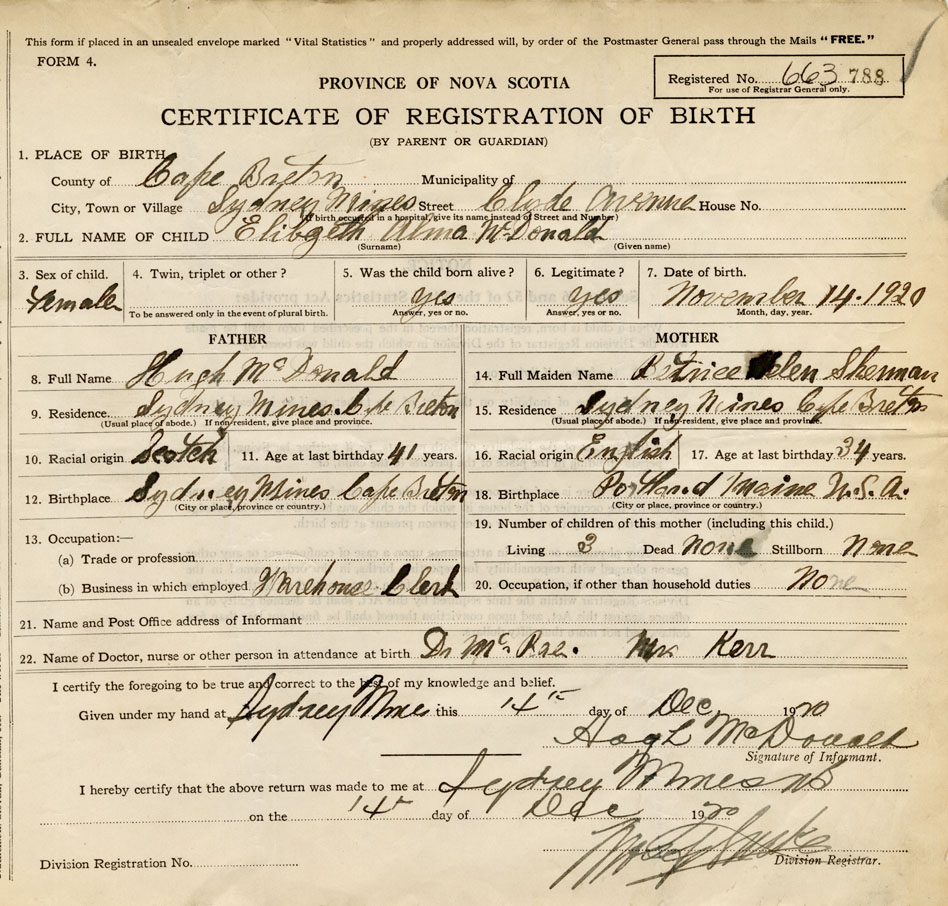 This form if placed in an unsealed envelope marked "Vital Statistics" and properly addressed will, by order of the Postmaster General pass through the Mails "FREE."
FORM 4.
Registered No. 663 788
For use of Registrar General only.
PROVINCE OF NOVA SCOTIA
CERTIFICATE OF REGISTRATION OF BIRTH
(BY PARENT OR GUARDIAN)
1. PLACE OF BIRTH
County of Cape Breton Municipality of
City, Town or Village Sydney Mines Street Clyde Avenue House No.
(If birth occurred in a hospital, give its name instead of Street and Number)
2. FULL NAME OF CHILD Elibgeth Alma McDonald
(Surname) (Given name)
3. Sex of child. Female
4. Twin, triplet or other?
To be answered only in the event of plural birth.
5. Was the child born alive? yes
Answer, yes or no.
6. Legitimate? yes
Answer, yes or no.
7. Date of birth.
November 14. 1920
Month, day, year.
FATHER
8. Full Name Hugh McDonald
9. Residence. Sydney Mines. Cpe Breton
(Usual place of abode.) If non-resident, give place and province.
10. Racial origin Scotch 11. Age at last birthday 41 years.
12. Birthplace Sydney Mines Cape Breton
(City or place, province or country.)
13. Occupation:—
(a) Trade or profession
(b) Business in which employed Warehouse Clerk
MOTHER
14. Full Maiden Name Betrice Helen Sherman
15. Residence Sydney Mines Cape Breton
(Usual place of abode.) If non-resident, give place and province.
16. Racial origin English 17. Age at last birthday 34 years.
18. Birthplace Portland Maine U.S.A.
(City or place, province or country.)
19. Number of children of this mother (including this child.)
Living 3 Dead none Stillborn None
20. Occupation, if other than household duties None
21. Name and Post Office address of Informant
22. Name of Doctor, nurse or other person in attendance at birth Dr McRae. Mrs Kerr
I certify the foregoing to be true and correct to the best of my knowledge and belief.
Given under my hand at Sydney Mines this 14th day of Dec 1920
Hugh McDonald
Signature of Informant.
I hereby certify that the above return was made to me at Sydney Mines NS
on the 14th day of Dec 1920
Division Registration No.
Division Registrar.